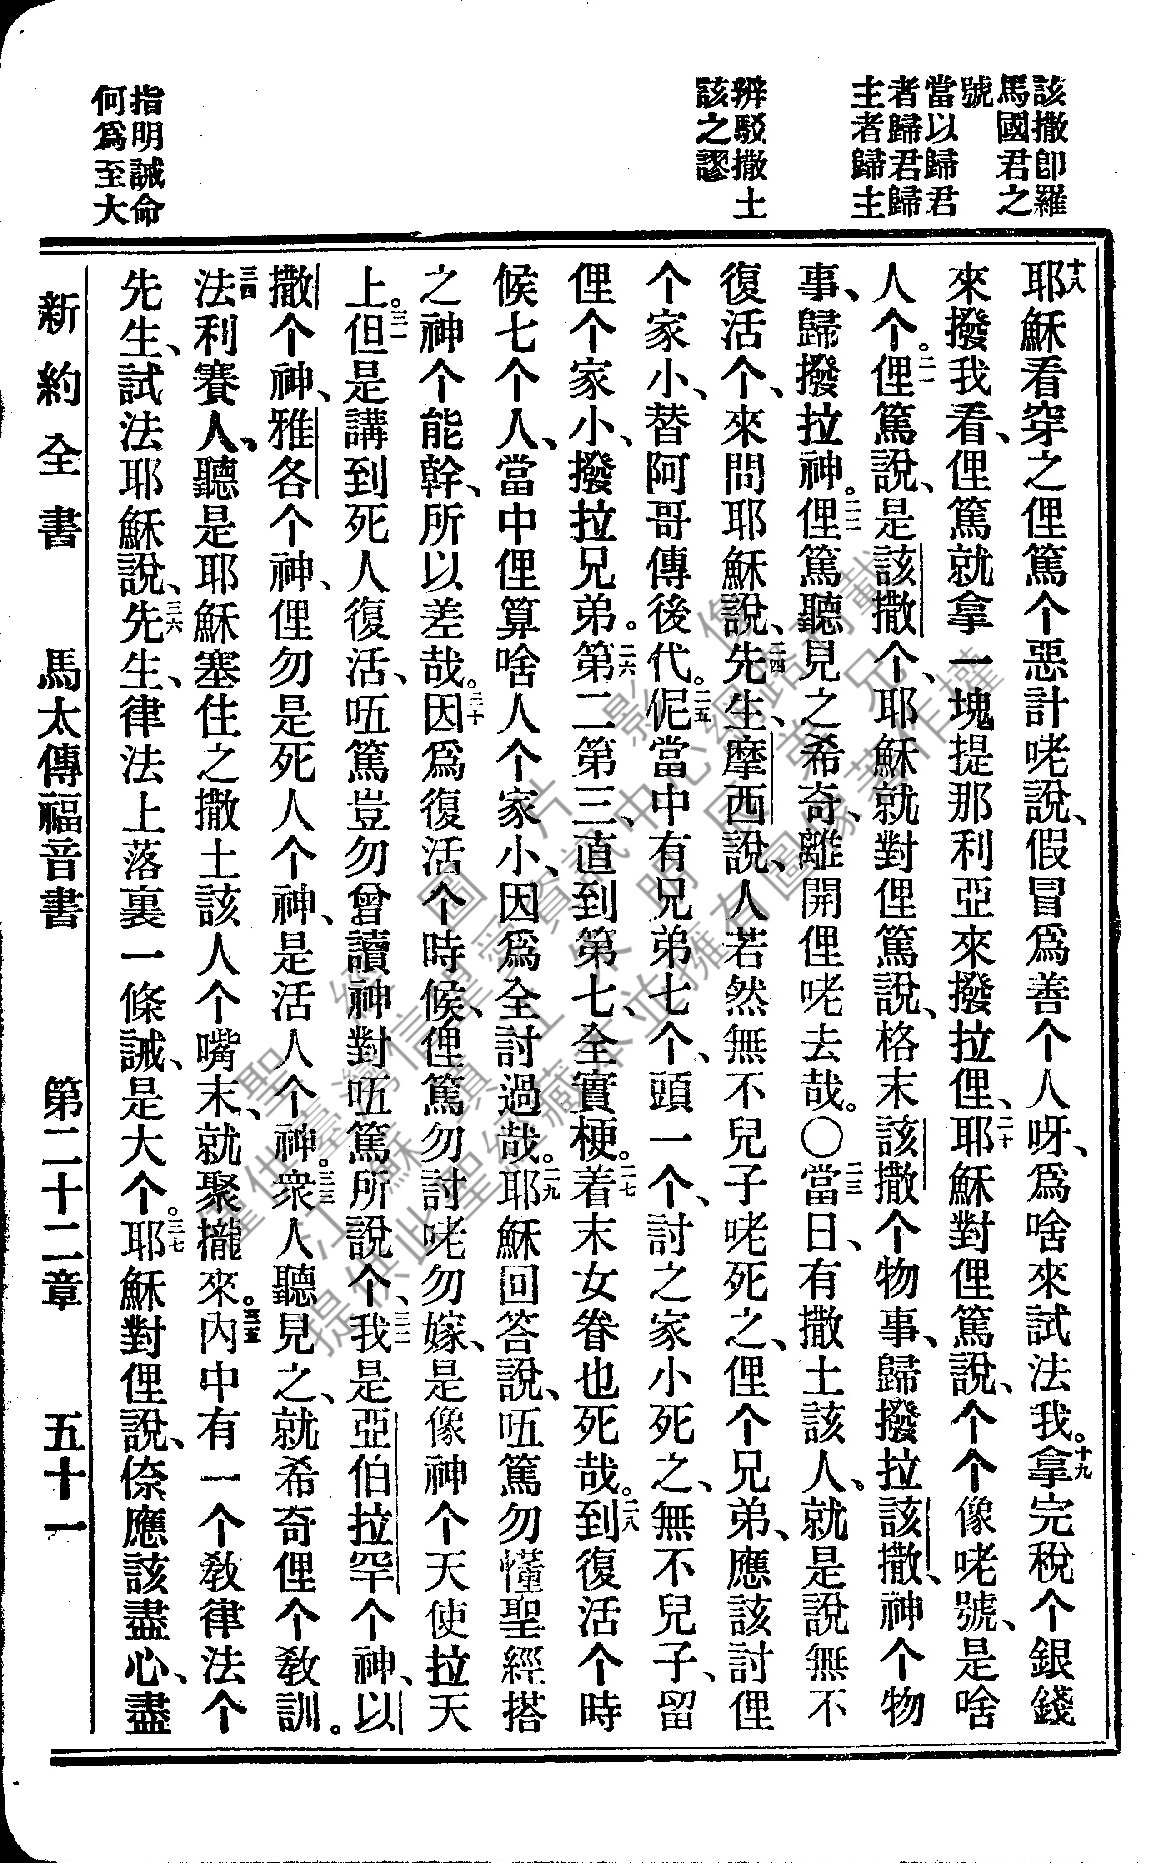 該撒卽羅
馬國君之
號
當以歸君
者歸君歸
主者歸主
辨駁撒土
該之謬
指明誡命
何爲至大
十八耶穌看穿之俚篤个惡計咾說、假冒爲善个人呀、爲啥來試法我。十九拿完稅个銀錢
來撥我看、俚篤就拿一塊提那利亞來撥拉俚、二十耶穌對俚篤說、个个像咾號、是啥
人个。二一俚篤說、是該撒个、耶穌就對俚篤說、格末該撒个物事、歸撥拉該撒、神个物
事、歸撥拉神。二二俚篤聽見之希奇、離開俚咾去哉。〇二三當日、有撒土該人、就是說無不
復活个、來問耶穌說、二四先生、摩西說、人若然無不兒子咾死之、俚个兄弟、應該討俚
个家小、替阿哥傳後代。二五伲當中有兄弟七个、頭一个、討之家小死之、無不兒子、留
俚个家小、撥拉兄弟。二六第二第三、直到第七、全實梗。二七着末女眷也死哉。二八到復活个時
候七个人、當中俚算啥人个家小、因爲全討過哉。二九耶穌回答說、㑚篤勿懂聖經搭
之神个能幹、所以差哉。三十因爲復活个時候、俚篤勿討咾勿嫁、是像神个天使拉天
上。三一但是講到死人復活、㑚篤豈勿曾讀神對㑚篤所說个、三二我是亞伯拉罕个神、以
撒个神、雅各个神、俚勿是死人个神、是活人个神。三三衆人聽見之、就希奇俚个敎訓。
三四法利賽人、聽是耶穌塞住之撒土該人个嘴末、就聚攏來。三五內中有一个敎律法个
先生、試法耶穌說、三六先生、律法上落裏一條誡、是大个。三七耶穌對俚說、倷應該盡心、盡
新約全書　馬太傳福音書　第二十二章　五十一
聖經圖片影像
僅供臺灣信望愛資訊中心網路刊載
江蘇鎮江
提供此聖經藏本並擁有圖像著作權